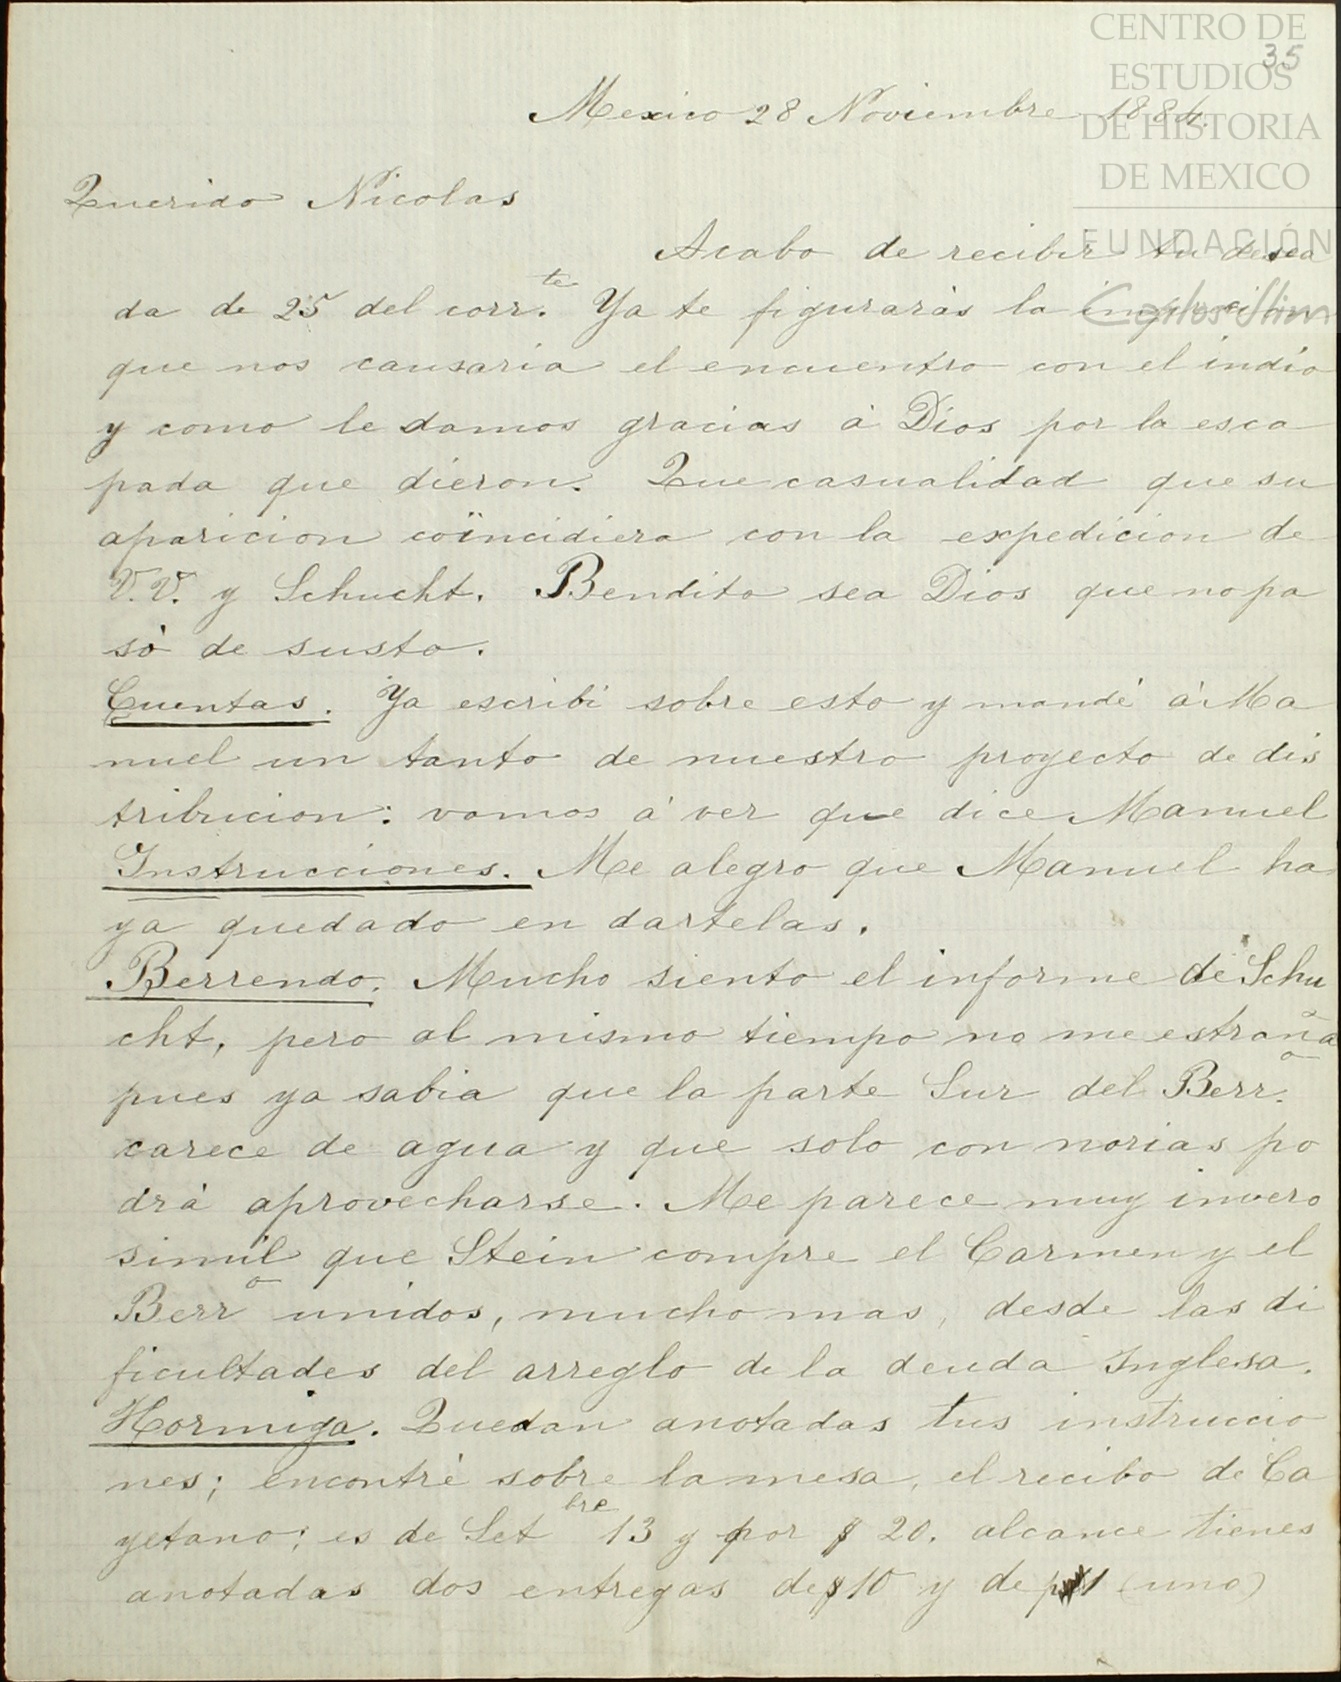 CENTRO DE
ESTUDIOS
DE HISTORIA
DE MEXICO
FUNDACIÓN
Carlos Slim
35
Mexico 28 Noviembre 1884.
Querido Nicolas
Acabo de recibir tu desea
da de 25 del corr.te Ya te figurarás la impresion
que nos causaria el encuentro con el indio
y como le damos gracias á Dios por la esca
pada que dieron. Que casualidad que su
aparicion coïncidiera con la expedicion de
V.V. y Schucht. Bendito sea Dios que no pa
só de susto.
Cuentas. Ya escribi sobre esto y mandé á Ma
nuel un tanto de nuestro proyecto de dis
tribucion: vamos á ver que dice Manuel
Instrucciones. Me alegro que Manuel ha
ya quedado en dartelas.
Berrendo. Mucho siento el informe de Schu
cht, pero al mismo tiempo no me estraña
pues ya sabia que la parte Sur del Berr.o
carece de agua y que solo con norias po
drá aprovecharse. Me parece muy invero
simil que Stein compre el Carmen y el
Berro unidos, mucho mas, desde las di
ficultades del arreglo de la deuda Inglesa.
Hormiga. Quedan anotadas tus instruccio
nes; encontré sobre la mesa, el recibo de Ca
yetano; es de Setbre 13 y por $ 20. alcance tienes
anotadas dos entregas de $10 y de 1 (uno)